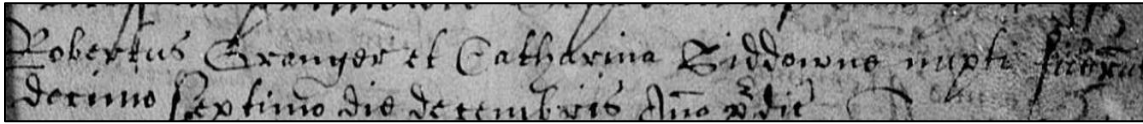 Robertus Granger et Catharina Siddowne nupti fuerunt
decimo septimo die decembris Ano pdic